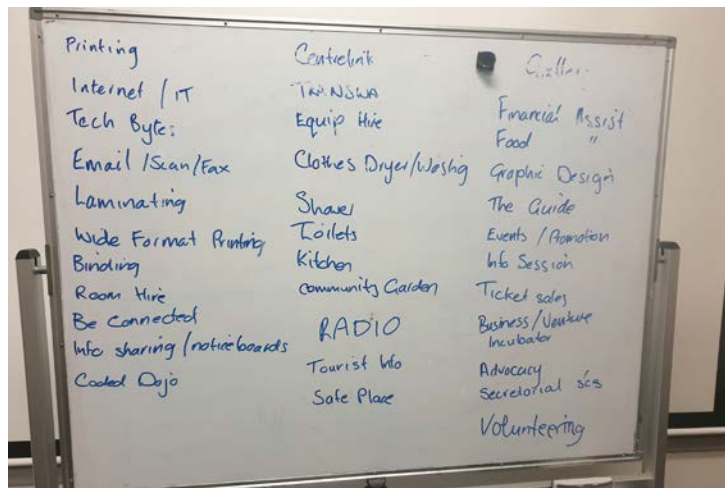 Printing
Internet / IT
Tech Bytes
Email / Scan / Fax
Laminating
Wide Format Printing
Binding
Room Hire
Be Connected
Info sharing / noticeboards
Coded Dojo
Centrelink
TRANSWA
Equip Hire
Clothes Dryer/Washing
Shower
Toilets
Kitchen
community Garden
RADIO
Tourist Info
Safe Place
Financial Assist
Food "
Graphic Design
The Guide
Events / Promotion
Info Session
Ticket sales
Business / Venture
Incubator
Advocacy
Secretarial scs
Volunteering